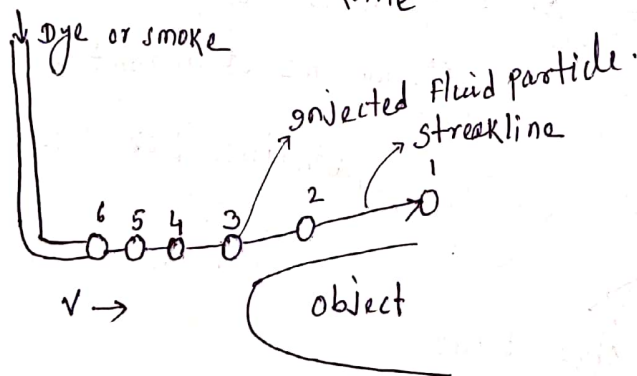 Time
Dye or smoke
Injected Fluid particle.
streakline
1
2
3
4
5
6
V →
object